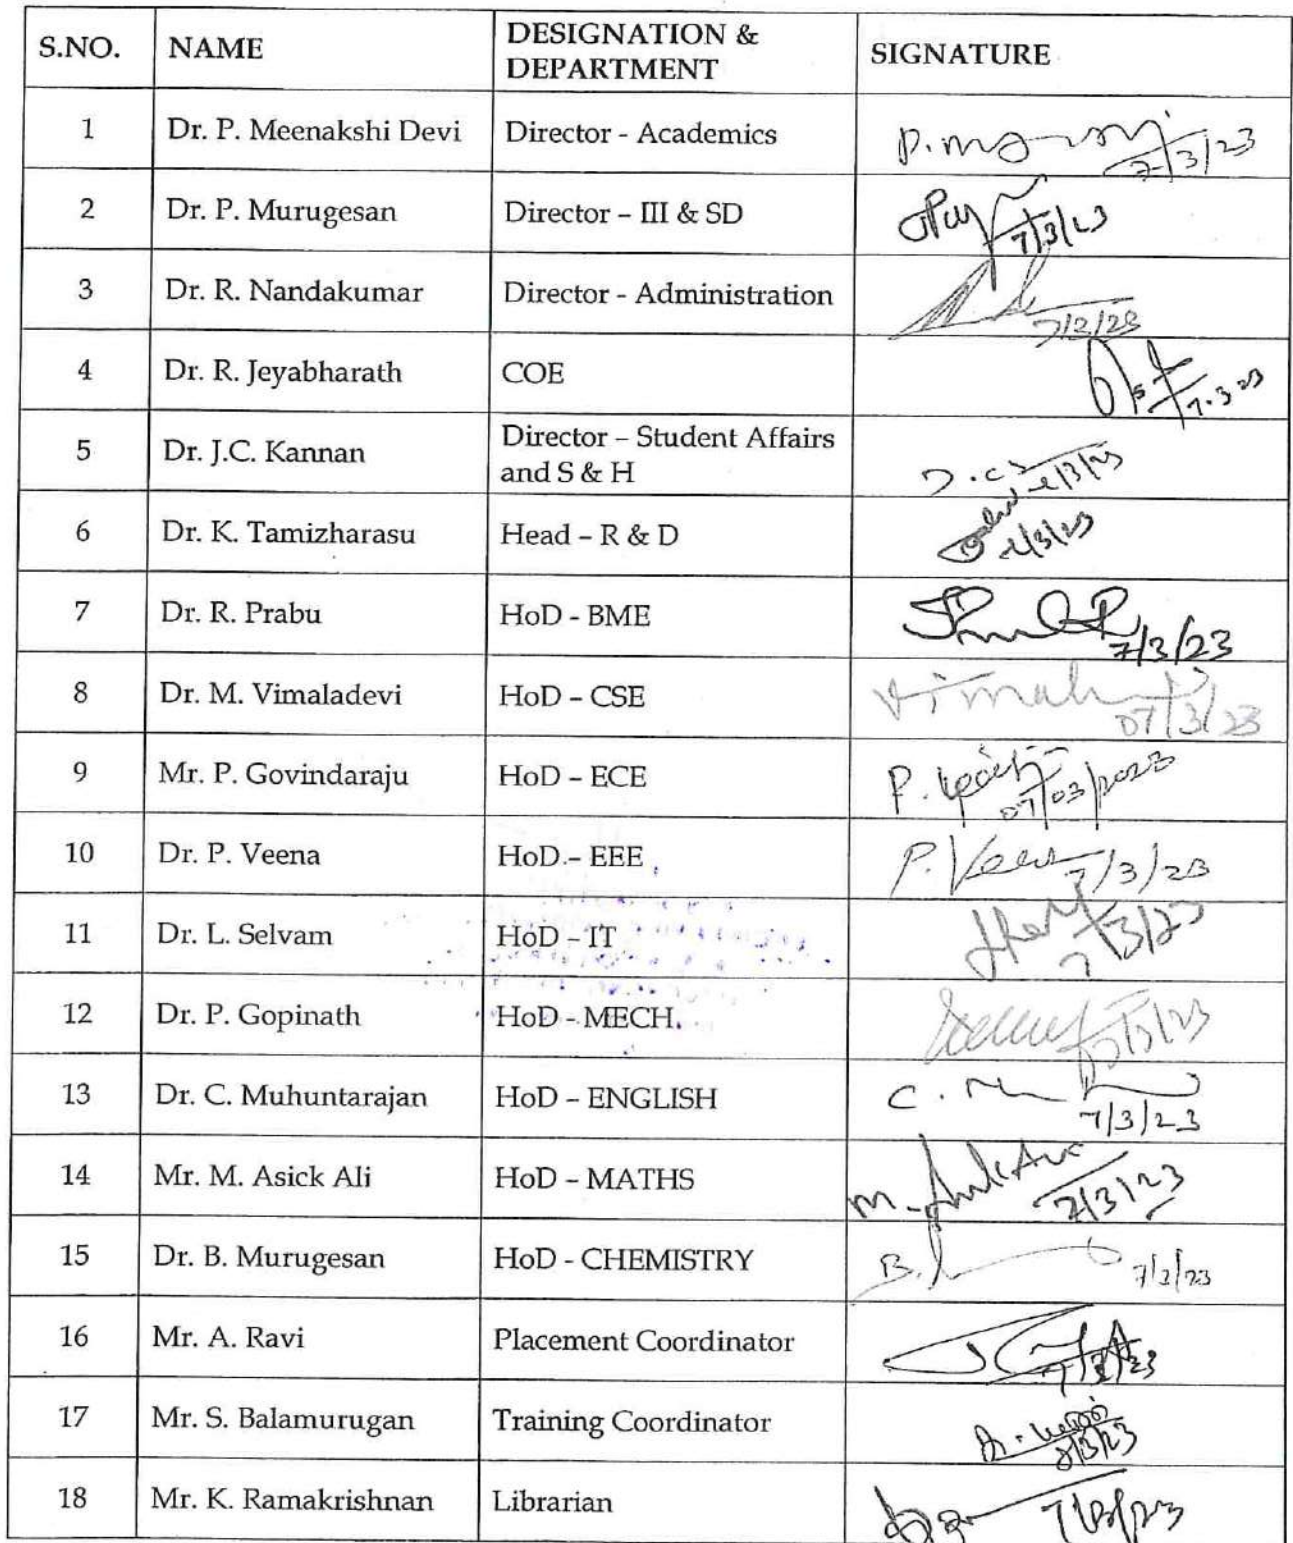 S.NO. NAME DESIGNATION & DEPARTMENT SIGNATURE
1 Dr. P. Meenakshi Devi Director - Academics 7/3/23
2 Dr. P. Murugesan Director – III & SD 7/3/23
3 Dr. R. Nandakumar Director - Administration 7/2/23
4 Dr. R. Jeyabharath COE 7.3.23
5 Dr. J.C. Kannan Director – Student Affairs and S & H
6 Dr. K. Tamizharasu Head – R & D
7 Dr. R. Prabu HoD - BME 7/3/23
8 Dr. M. Vimaladevi HoD – CSE 07/3/23
9 Mr. P. Govindaraju HoD – ECE 07/03/2023
10 Dr. P. Veena HoD – EEE P. Veena 7/3/23
11 Dr. L. Selvam HoD – IT 7/3/23
12 Dr. P. Gopinath HoD - MECH.
13 Dr. C. Muhuntarajan HoD – ENGLISH 7/3/23
14 Mr. M. Asick Ali HoD – MATHS 7/3/23
15 Dr. B. Murugesan HoD - CHEMISTRY
16 Mr. A. Ravi Placement Coordinator
17 Mr. S. Balamurugan Training Coordinator
18 Mr. K. Ramakrishnan Librarian 7/3/23